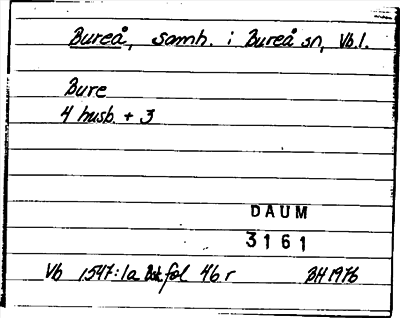 Bureå, samh. i Bureå sn, Vb.l.
Bure
4 husb. + 3
DAUM
3161
Vb 1547:1a Bokföl 46 r BH 1976